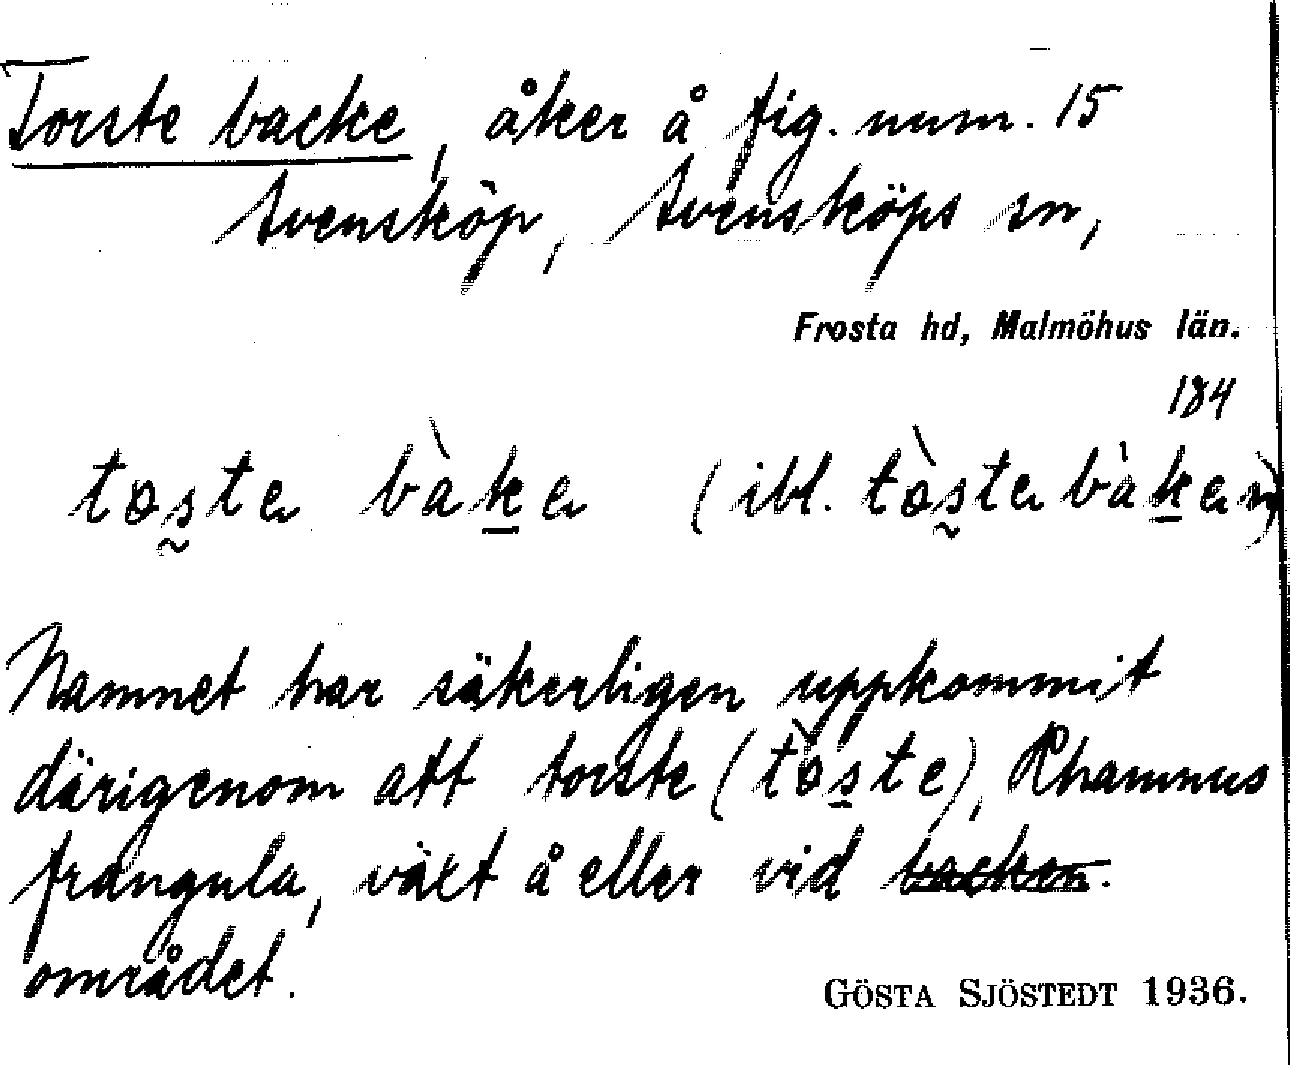 Torste backe, åker å fig. num. 15
Svensköp, Svensköps sn,
Frosta hd, Malmöhus län.
184
tɷste bàke (ibl. tɷ̀ste bàken)
Namnet har säkerligen uppkommit
därigenom att torste (tɷ̀ste), Rhamnus
frangula, växt å eller vid backen.
området.
GÖSTA SJÖSTEDT 1936.